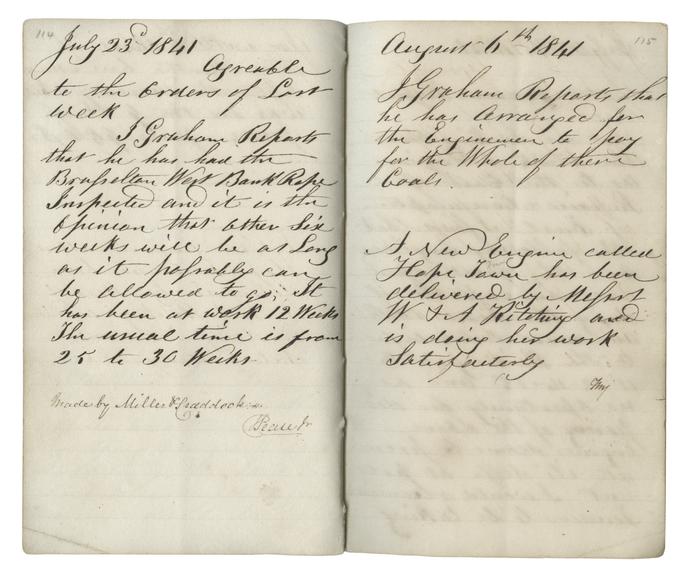 114
July 23d 1841
Agreable
to the Orders of Last
week
J Graham Reports
that he has had the
Brusselton West Bank Rope
Inspected and it is the
Opinion that other Six
weeks will be as Long
as it possably can
be allowed to go; It
has been at work 12 Weeks
The usual time is from
25 to 30 Weeks
Made by Miller & Craddock
Pease Jr
115
August 6th 1841
J Graham Reports that
he has Arranged for
the Enginemen to pay
for the Whole of there
Coals.
A New Engine called
Hope Town has been
delivered by Messrs
W & A Kitching and
is doing her work
Satisfacterly